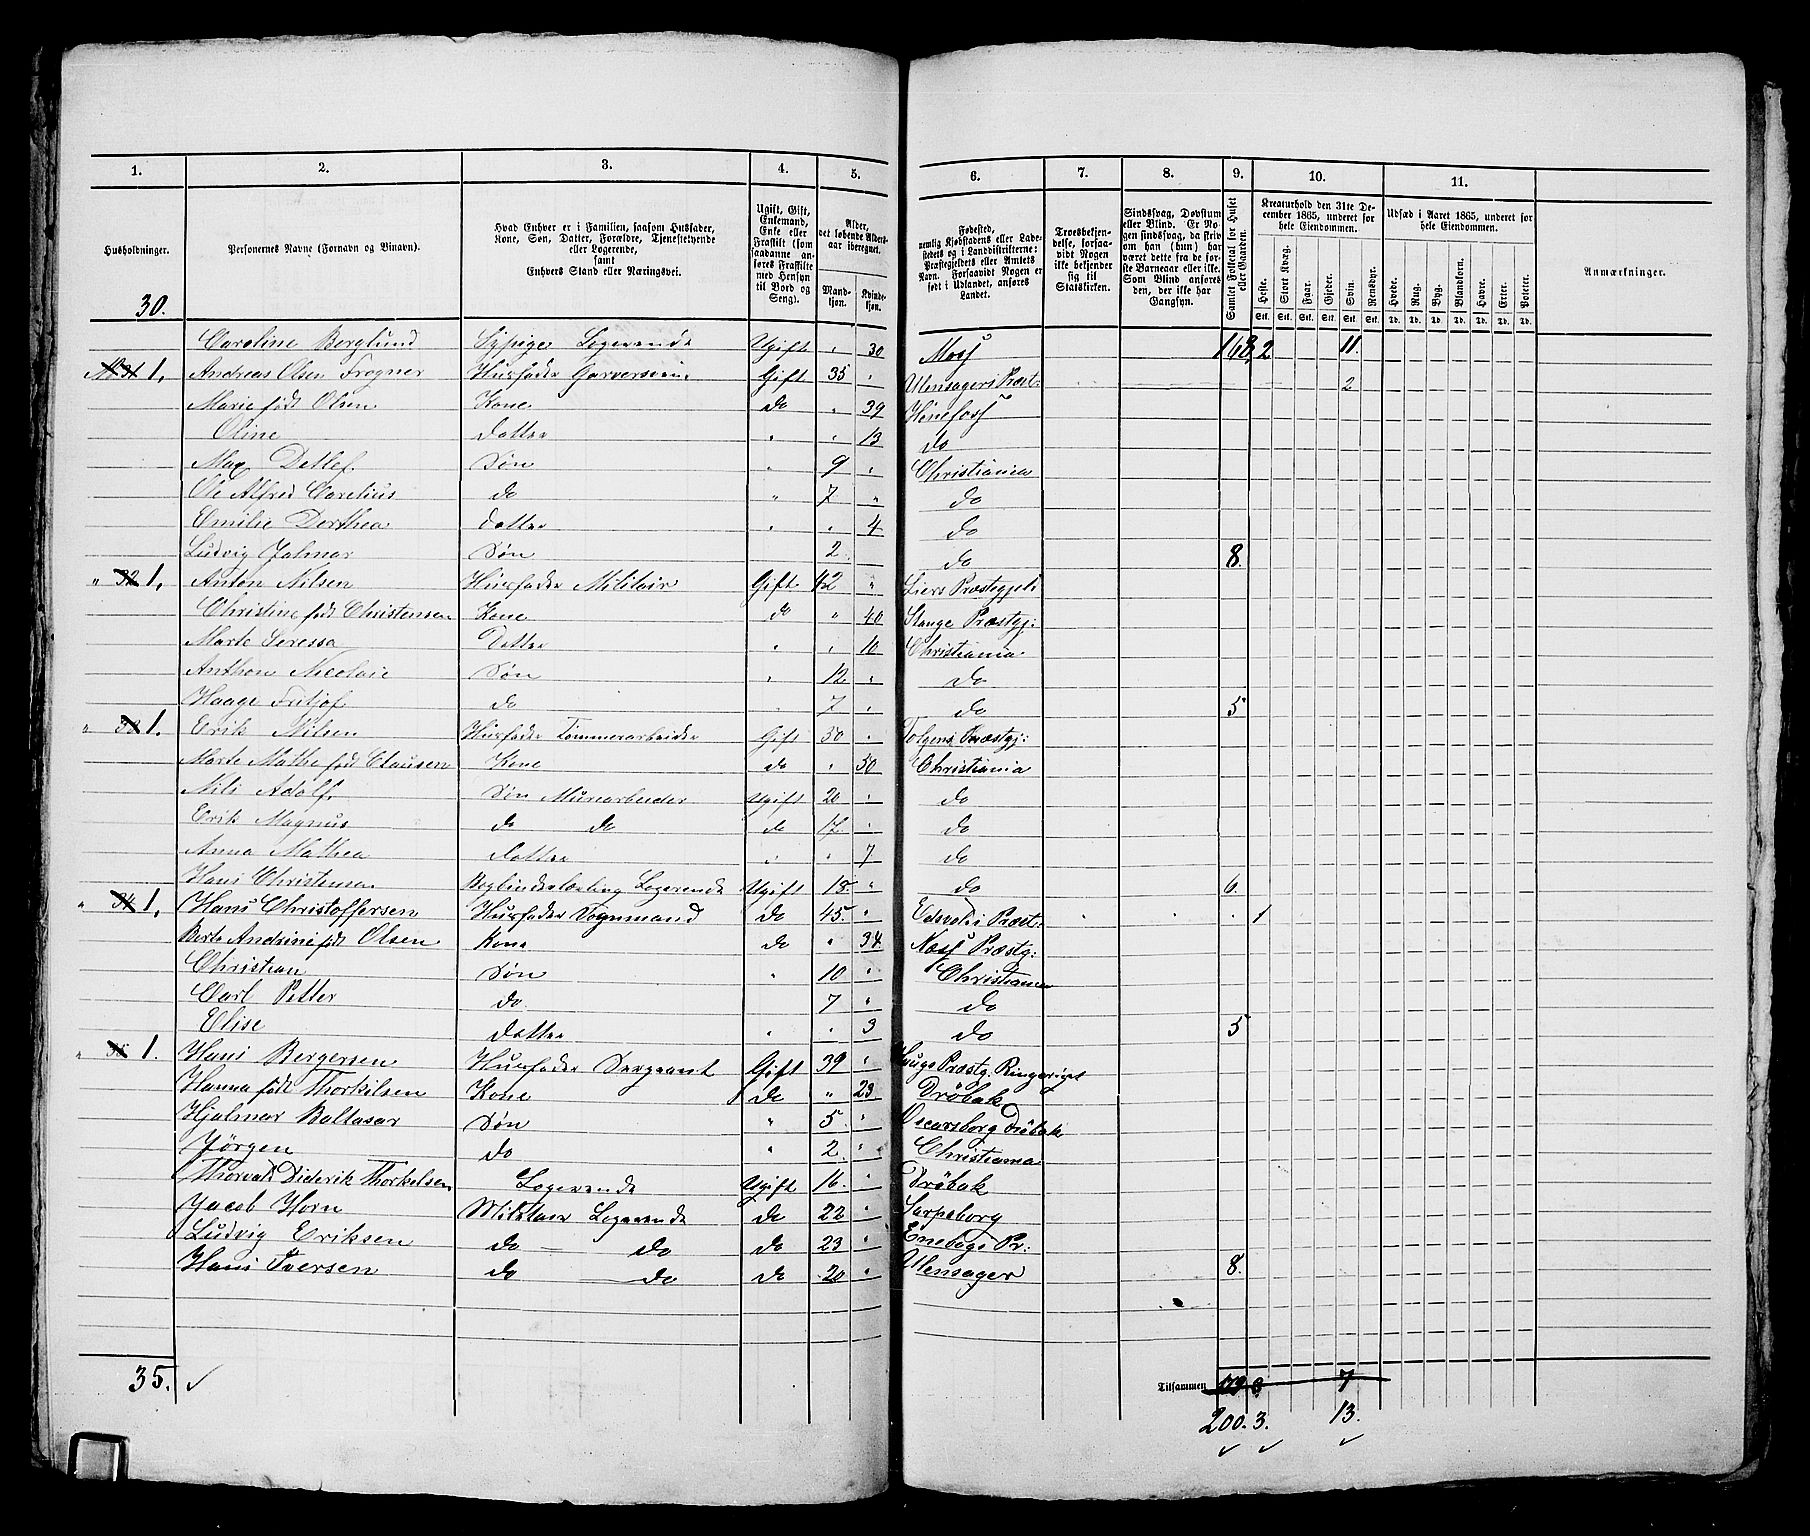 1. 2. 3. 4. 5. 6. 7. 8. 9. 10. 11.
Husholdninger.
Personernes Navne (Fornavn og Binavn).
Hvad Enhver er i Familien, saasom Husfader,
Kone, Søn, Datter, Forældre, Tjenestetyende
eller Logerende,
samt
Enhvers Stand eller Næringsvei.
Ugift, Gift,
Enkemand,
Enke eller
Fraskilt (som
saadanne an-
føres Fraskilte
med Hensyn
til Bord og
Seng).
Alder,
det løbende Alders-
aar iberegnet.
Mand-
kjøn.
Kvinde-
kjøn.
Fødested,
nemlig Kjøbstadens eller Lade-
stedets og i Landdistrikterne:
Præstegjeldets eller Amtets
Navn. Forsaavidt Nogen er
født i Udlandet, anføres
Landet.
Troesbekjen-
delse, forsaa-
vidt Nogen
ikke bekjender
sig til
Statskirken.
Sindssvag, Døvstum
eller Blind. Er No-
gen sindssvag, da skriv
om han (hun) har
været dette fra de før-
ste Barneaar eller ikke.
Som Blind ansføres
den, der ikke har
Gangsyn.
Samlet Folketal for Huset
eller Gaarden.
Kreaturhold den 31te De-
cember 1865, underet for
hele Eiendommen.
Heste. Stort Kvæg. Faar. Gjeder. Svin. Rensdyr.
Stk. Stk. Stk. Stk. Stk. Stk.
Udsæd i Aaret 1865, underet for
hele Eiendommen.
Hvede. Rug. Byg. Blandkorn. Havre. Erter. Poteter.
Td. Td. Td. Td. Td. Td. Td.
Anmærkninger.
30.
Caroline Berglund Sypige Logerende Ugift " 30 Moss 168 2 11
No 31 1. Andreas Olsen Frogner Husfader Garversvend Gift 35 " Ulensagers Præst: 2
Marie født Olsen Kone do " 39 Hønefoss
Oline Datter " " 13 do
Max Detlef Søn " 9 " Christiania
Ole Alfred Carelius do " 7 " do
Emilie Dorthea Datter " " 4 do
Ludvig Jalmar Søn 2 do 8.
" 32 1. Anton Nilsen Husfader Militair Gift 42 " Liers Præstegjeld
Christine født Christensen Kone do " 40 Stange Præstgj:
Marte Seressa Datter " " 10 Christiania
Anthon Nicolaie Søn " 12 " do
Haage Fritjof do " 7 " do 5
" 33 1. Erik Nilsen Husfader Tømmerarbeider Gift 50 " Tolgens Præstgj:
Marte Mathea født Clausen Kone do " 50 Christiania
Nils Adolf Søn Murarbeider Ugift 20 " do
Erik Magnus do do do 17 " do
Anna Mathea Datter " " 7 do
Hans Christensen Bogbinderlærling Logerende Ugift 18 " do 6.
" 34 1. Hans Christoffersen Husfader Vognmand do 45. " Edsvolds Præst: 1
Berte Andrine født Olsen Kone do " 34. Næss Præstg:
Christian Søn " 10 " Christiania
Carl Petter do. 7 " do
Elise Datter " " 3 do 5
" 35 1. Hans Bergersen Husfader Sergeant Gift 39 " Haugs Præstg. Ringeriget
Hanna født Thorkilsen Kone do " 23 Drøbak
Hjalmar Baltasar Søn " 5 " Oscarsborg Drøbak
Jørgen do " 2 " Christiania
Thorvald Diderik Thorkelsen Logerende Ugift 16. " Drøbak
Jacob Horn Militair Logerende do 22 " Sarpsborg
Ludvig Eriksen do — do do 23 " Enebags Pr:
Hans Iversen do — do do 20 " Ulensager 8.
35. ✓
Tilsammen 179 3 7
200. 3. 13.
✓ ✓ ✓